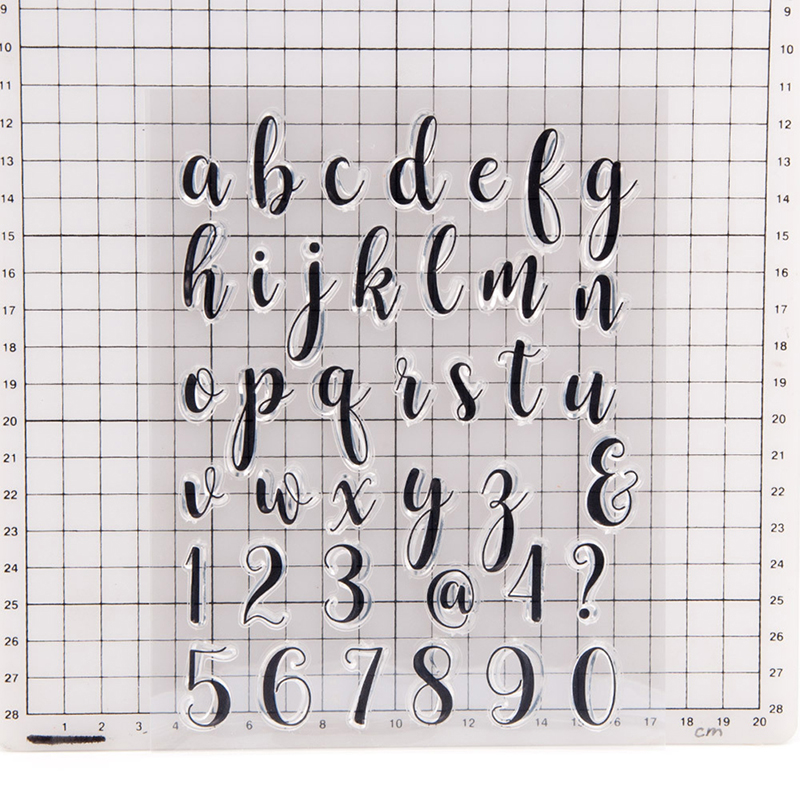 9 9
10 10
11 11
12 12
13 a b c d e f g 13
14 14
15 15
16 h i j k l m n 16
17 17
18 18
19 o p q r s t u 19
20 20
21 21
22 v w x y z & 22
23 23
24 1 2 3 @ 4 ? 24
25 25
26 26
27 5 6 7 8 9 0 27
28 28
1 2 3 4 6 8 10 11 12 14 15 16 17 18 19 20
cm